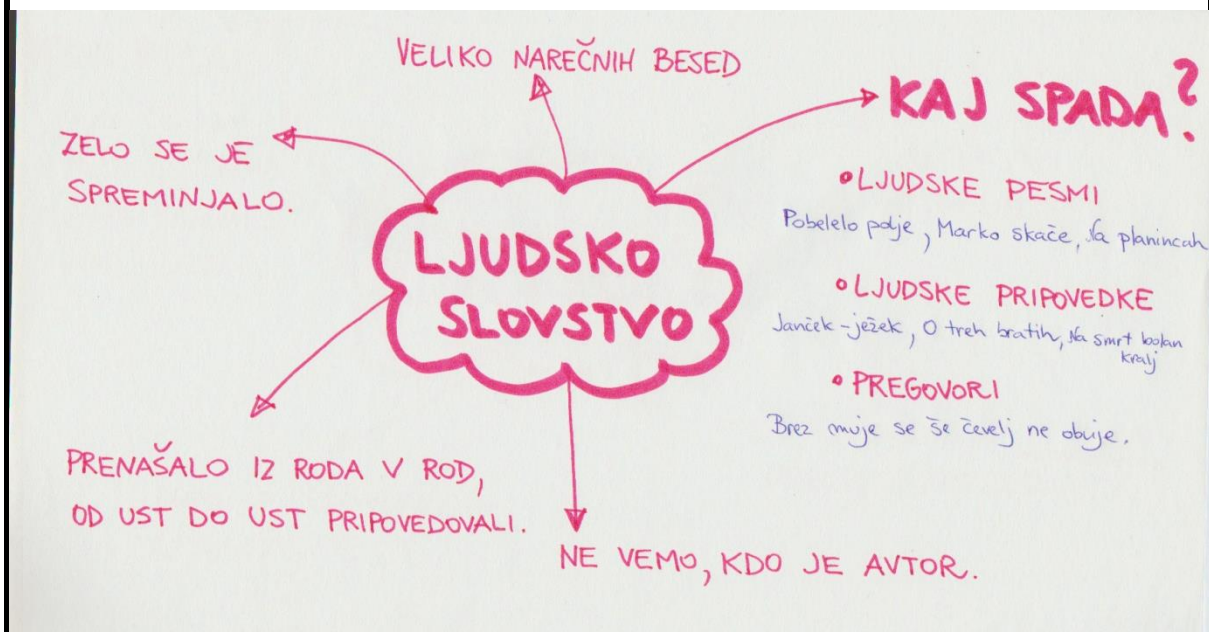 VELIKO NAREČNIH BESED
ZELO SE JE
SPREMINJALO.
LJUDSKO
SLOVSTVO
PRENAŠALO IZ RODA V ROD,
OD UST DO UST PRIPOVEDOVALI.
NE VEMO, KDO JE AVTOR.
KAJ SPADA?
• LJUDSKE PESMI
Pobelelo polje, Marko skače, Na planincah
• LJUDSKE PRIPOVEDKE
Janček-ježek, O treh bratih, Na smrt bolan
kralj
• PREGOVORI
Brez muje se še čevelj ne obuje.